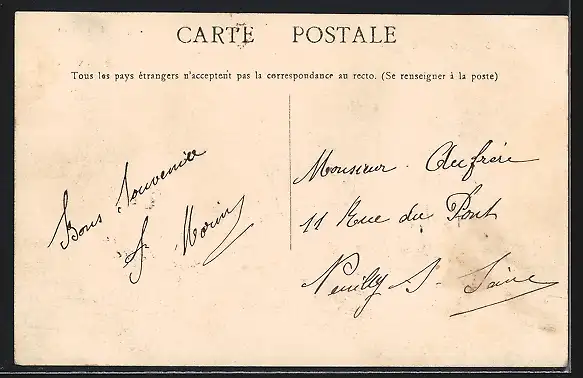 CARTE POSTALE
Tous les pays étrangers n'acceptent pas la correspondance au recto. (Se renseigner à la poste)
Bons Souvenirs
J. Morin
Monsieur Aufrère
11 Rue du Pont
Neuilly S- Seine